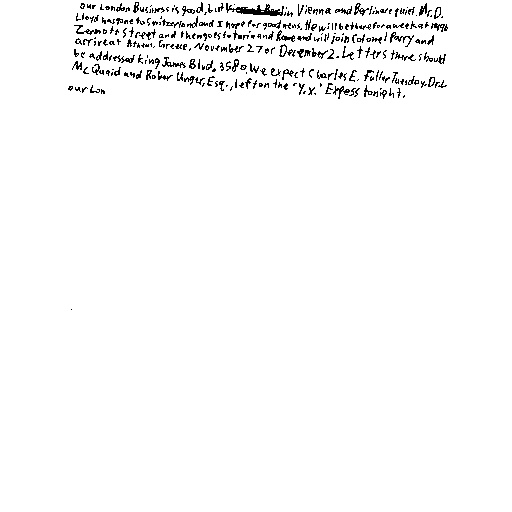 our London Business is good, but in Vienna and Berlin are quiet. Mr. D.
Lloyd has gone to Switzerland and I hope for good news. He will be there for a week at 1496
Zermott Street and then goes to Turin and Rome and will join Colonel Parry and
arrive at Athens, Greece, November 27 or December 2. Letters there should
be addressed King James Blvd. 3580. We expect Charles E. Fuller Tuesday. Dr. L
McQuaid and Robert Unger, Esq., left on the "Y.X." Express tonight.
our Lon